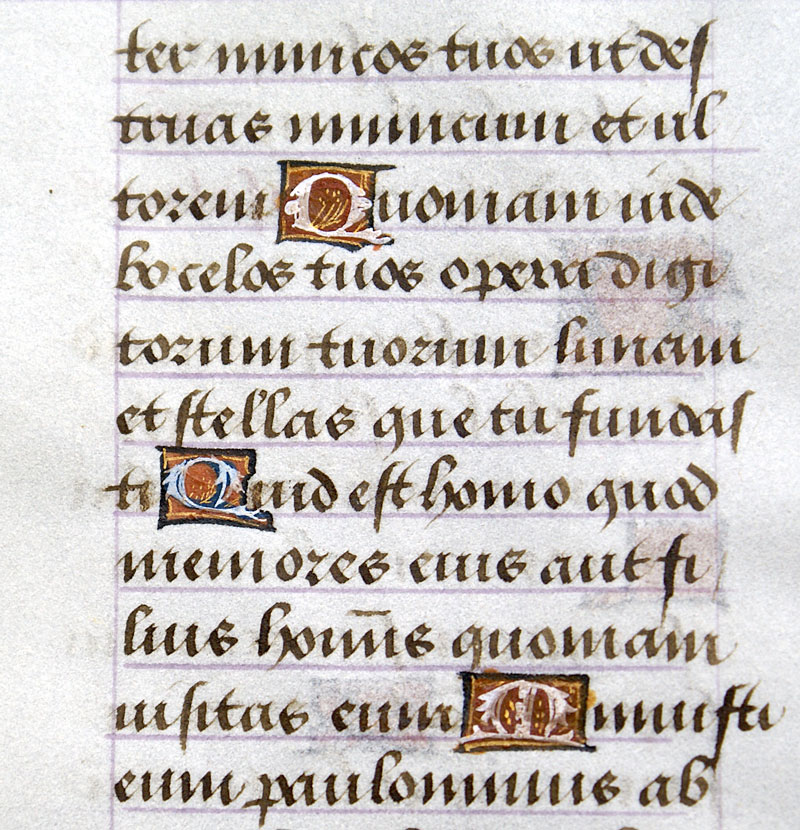 ter inimicos tuos ut des
truas inimicum et ul
torem Quoniam uide
bo celos tuos opera digi
torum tuorum lunam
et stellas que tu fundas
ti Quid est homo quod
memores eius aut fi
lius homīs quoniam
uisitas eum Minuisti
eum paulominus ab